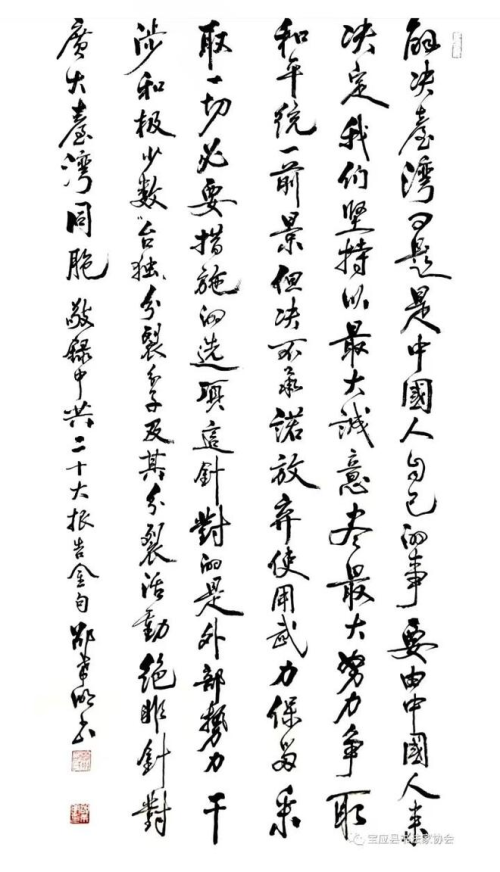 解决臺灣问题是中國人自己的事要由中國人来
决定我们坚持以最大诚意尽最大努力争取
和平统一前景但决不承諾放弃使用武力保留采
取一切必要措施的选项這針對的是外部勢力干
涉和极少数“台独”分裂分子及其分裂活動绝非針對
廣大臺灣同胞 敬録中共二十大报告金句
宝应县书法家协会